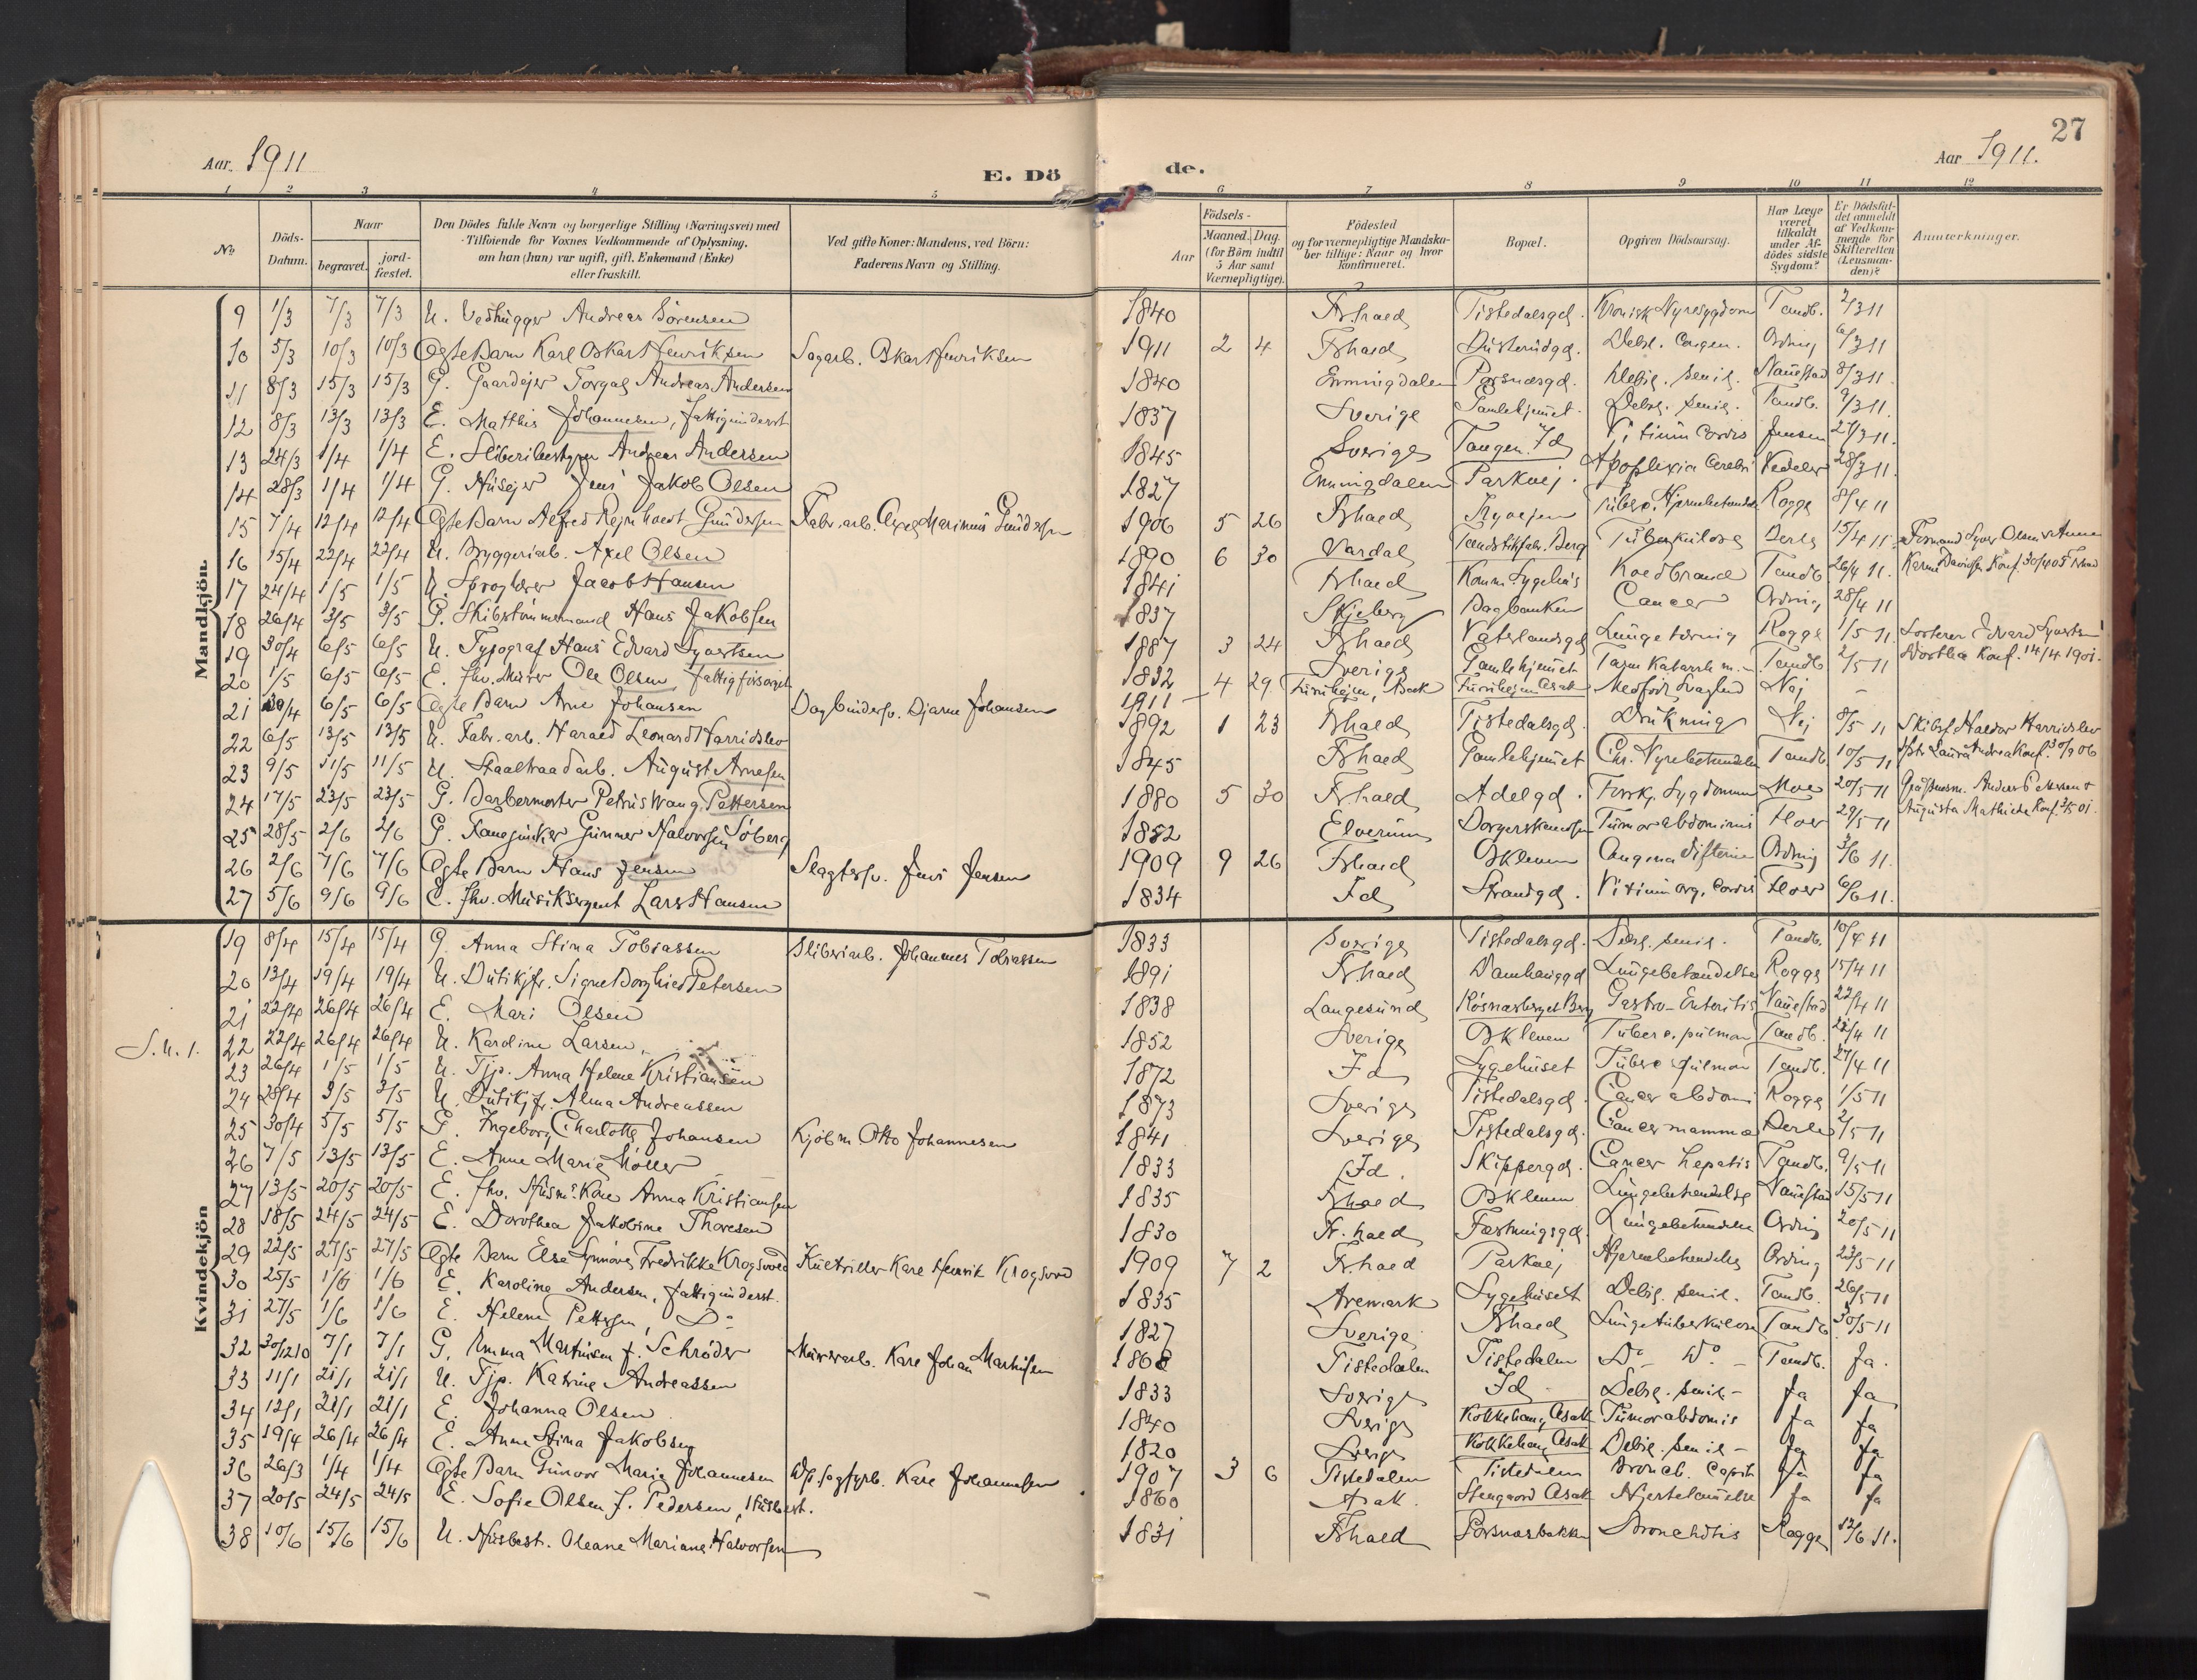 27
Aar. 1911
E. Dö
de.
Aar 1911.
1 2 3 4 5 6 7 8 9 10 11 12
No
Döds-
Datum.
Naar
begravet.
jord-
fæstet.
Den Dödes fulde Navn og borgerlige Stilling (Næringsvei) med
Tilföiende for Voxnes Vedkommende af Oplysning,
om han (hun) var ugift, gift, Enkemand (Enke)
eller fraskilt.
Ved gifte Koner: Mandens, ved Börn:
Faderens Navn og Stilling.
Födsels-
Aar
Maaned. Dag.
(for Börn indtil
5 Aar samt
Værnepligtige).
Födested
og for værnepligtige Mandska-
ber tillige: Naar og hvor
konfirmeret.
Bopæl.
Opgiven Dödsaarsag.
Har Læge
været
tilkaldt
under Af-
dödes sidste
Sygdom?
Er Dödsfal-
det anmeldt
af Vedkom-
mende for
Skifteretten
(Lensman-
den)?
Anmerkninger.
Mandkjön.
9 1/3 7/3 7/3 U. Vedhugger Andreas Sörensen 1840 Fr.hald Tistedalsgd. Kronisk Nyresygdom Tandb. 2/3 11
10 5/3 10/3 10/3 Ægte Barn Karl Oskar Henriksen Sagarb. Oskar Henriksen 1911 2 4 Fr.hald Debil. congen. Ording 6/3 11
11 8/3 15/3 15/3 G. Gaardejer Torgal Andreas Andersen 1840 Enningdalen Porsnæsgd. Debil. senil. Nauestad 8/3 11.
12 8/3 13/3 13/3 E. Matthis Johannesen, fattigunderst 1837 Sverige Gamlehjemet. Debil. senil. Tandb. 9/3 11.
13 24/3 1/4 1/4 E. Sliberibestyrer Andreas Andersen 1845 Sverige Tangen. Id Vitium Cordis Jensen 27/3 11.
14 28/3 1/4 1/4 G. Husejer Jens Jakob Olsen 1827 Enningdalen Parkvej. Apoplexia Cerebri Vedeler 28/3 11.
15 7/4 12/4 12/4 Ægte Barn Alfred Reinhardt Gundersen Fabr.arb. Marinus Gundersen 1906 5 26 Fr.hald Tuberc. Hjernebetændelse Rogge 8/4 11
16 15/4 22/4 22/4 U. Bryggeriarb. Axel Olsen 1890 6 30 Vardal Tændstikfabr. Berg Tuberkulose 15/4 11 Formand Syver Olsen & Anne
Karine Davidsen Konf. 30/4 05 Fr.hald
17 24/4 1/5 1/5 U. Sproglærer Jacob Hansen 1841 Fr.hald Komm. Sygehus Koldbrand Tandb 26/4 11.
18 26/4 3/5 3/5 G. Skibstømmermand Hans Jakobsen 1837 Skjeberg Bagbanken Cancer Ording 28/4 11
19 30/4 6/5 6/5 U. Typograf Hans Edvard Syvertsen 1887 3 24 Fr.hald Vaterlandsgd Lungetæring Rogge 1/5 11. Edvard Syvertsen
Dorthea Konf. 14/4 1901.
20 1/5 6/5 6/5 E. fhv. Murer Ole Olsen, fattigforsörget 1832 Sverige Gamlehjemet Tarm Katarrh Tandb 2/5 11
21 30/4 6/5 6/5 Ægte Barn Arne Johansen Bogbindersv. Bjarne Johansen 1911 4 29 Furuhejm, Asak Furuhejm Asak Medfödt Svaghed Nej –
22 6/5 13/5 13/5 U. Fabr.arb. Harald Leonard Harridslev 1892 1 23 Fr.hald Tistedalsgd. Drukning Nej 8/5 11 Skibsf. Haldor Harridslev
Laura Andrea Konf. 30/9 06
23 9/5 11/5 11/5 U. Staaltraadarb. August Arnesen 1845 Fr.hald Gamlehjemet Chr. Nyrebetændelse Tandb 10/5 11
24 17/5 23/5 23/5 G. Barbermester Petrus Wang Pettersen 1880 5 30 Fr.hald Adelgd. Sygdomme Moe 20/5 11 Anders Pettersen &
Augusta Mathilde Konf. 01.
25 28/5 2/6 2/6 G. Fanejunker Gunner Halvorsen Söberg 1852 Elverum Tumor abdominis Hoer 29/5 11
26 2/6 7/6 7/6 Ægte Barn Hans Jensen Slagtersv. Jens Jensen 1909 9 26 Fr.hald Oskleven Angina difterie Ording 3/6 11.
27 5/6 9/6 9/6 E. fhv. Musiksergent Lars Hansen 1834 Id Strandgd. Vitium org. Cordis Hoer 6/6 11.
Kvindekjön
19 8/4 15/4 15/4 G. Anna Stina Tobiassen Sliberiarb. Johannes Tobiassen 1833 Sverige Tistedalsgd. Debil. senil. Tandb. 10/4 11
20 13/4 19/4 19/4 U. Butikjfr. Signe Borghild Petersen 1891 Fr.hald Damhauggd Lungebetændelse Rogge 15/4 11
21 22/4 26/4 26/4 E. Mari Olsen 1838 Langesund Rösnæsberget Berg Gastro-Enteritis Nauestad 22/4 11
S. U. 1. 22 22/4 26/4 26/4 U. Karoline Larsen 1852 Sverige Oskleven Tuberc. pulmon Tandb. 22/4 11
23 26/4 1/5 1/5 U. Tjp. Anna Helene Kristiansen 1872 Id Sygehuset Tuberc pulmon Tandb. 27/4 11
24 28/4 3/5 3/5 U. Butikjfr. Alma Andreassen 1873 Sverige Tistedalsgd. Cancer abdomi Rogge 1/5 11
25 30/4 5/5 5/5 G. Ingeborg Charlotte Johansen Kjöbm. Otto Johannesen 1841 Sverige Tistedalsgd. Cancer mamma 2/5 11
26 7/5 13/5 13/5 E. Anne Marie Möller 1833 Id. Skippergd. Cancer hepatis Tandb. 9/5 11
27 13/5 20/5 20/5 E. fhv. Husm.s Kone Anna Kristiansen 1835 Fr.hald Oskleven Lungebetændelse Nauestad 15/5 11
28 18/5 24/5 24/5 E. Dorothea Jakobine Thoresen 1830 Fr.hald Fæstningsgd. Lungebetændelse Ording 20/5 11
29 22/5 27/5 27/5 Ægte Barn Else Synnöve Fredrikke Krogsveed Karl Henrik Krogsved 1909 7 2 Fr.hald Parkvej Hjernebetændelse Ording 23/5 11
30 25/5 1/6 1/6 E. Karoline Andersen, fattigunderst. 1835 Aremark Sygehuset Debil. senil. Tandb. 26/5 11
31 27/5 1/6 1/6 E. Helene Pettersen, Do 1827 Sverige Fr.hald Lungetuberkulose Tandb 30/5 11
32 30/12 10 7/1 7/1 G. Emma Martinsen f. Schröder Murerarb. Karl Johan Martinsen 1868 Tistedalen Tistedalen Do – Do – Tandb. Ja.
33 11/1 21/1 21/1 U. Tjp. Katrine Andreassen 1833 Sverige Id – Debil. senil – Ja Ja
34 12/1 21/1 21/1 E. Johanna Olsen 1840 Sverige Kokkehaug Asak Tumor abdomis Ja Ja
35 19/4 26/4 26/4 E. Anne Stina Jakobsen 1820 Sverige Kokkehaug Asak Debil. senil – Ja Ja
36 26/3 1/4 1/4 Ægte Barn Gunvor Marie Johannesen Karl Johannesen 1907 3 6 Tistedalen Tistedalen Bronch. Capil. Ja Ja
37 20/5 24/5 24/5 E. Sofie Olsen f. Pedersen, Husbest. 1860 Asak. Stengaard Asak Hjertelammelse Ja Ja
38 10/6 15/6 15/6 U. Husbest. Oleane Mariane Halvorsen 1831 Fr.hald Porsnæsbakken Bronchitis Rogge 12/6 11.